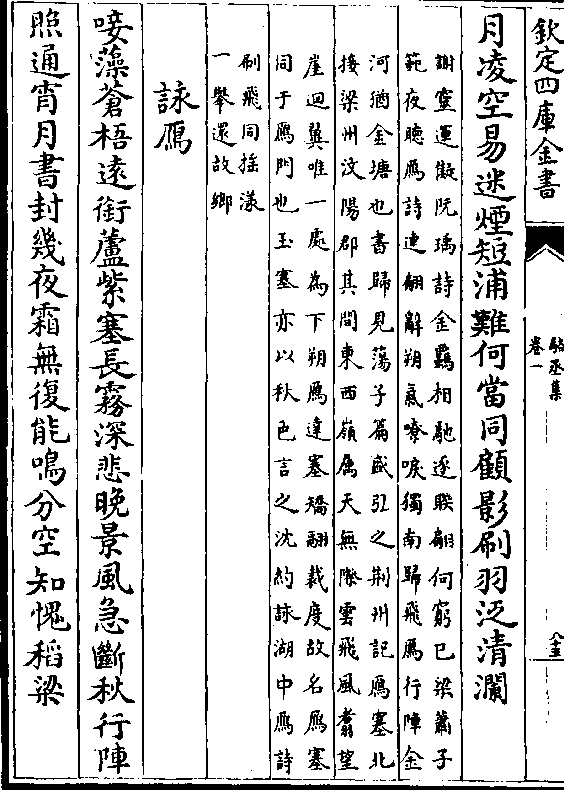 欽定四庫全書
駱丞集
卷一
八十五
月凌空易迷煙短浦難何當同顧影刷羽泛清瀾
謝靈運擬阮瑀詩金羈相馳逐聯翩何窮已梁蕭子
範夜聽鴈詩連翩辭朔氣嘹唳獨南歸飛鴈行陣金
河猶金塘也書歸見蕩子篇盛弘之荆州記鴈塞北
接梁州汶陽郡其間東西嶺屬天無際雲飛風翥望
崖迴翼唯一處為下朔鴈達塞矯翮裁度故名鴈塞
同于鴈門也玉塞亦以秋色言之沈約詠湖中鴈詩
刷飛同搖漾
一舉還故鄉
詠鴈
唼藻蒼梧遠銜蘆紫塞長霧深悲晚景風急斷秋行陣
照通宵月書封幾夜霜無復能鳴分空知愧稻梁